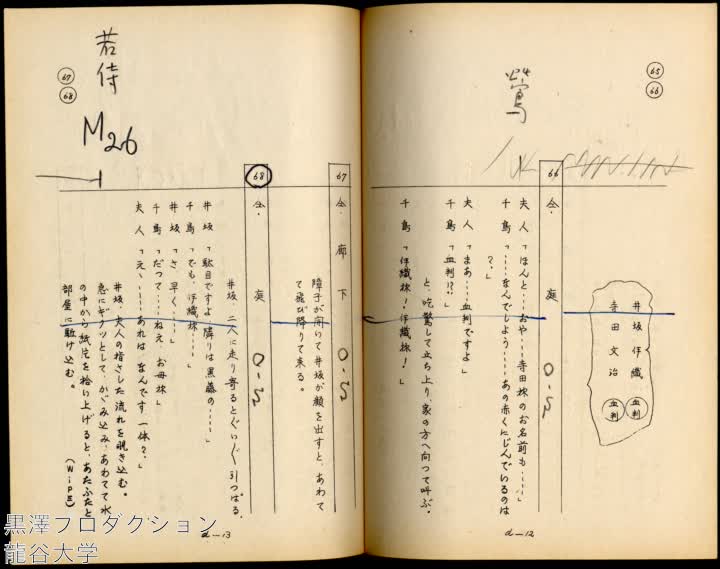 65
66
鶯
井坂伊織 血判
寺田文治 血判
66 仝. 庭
夫人「ほんと……おや……寺田様のお名前も……」
千鳥「……なんでしよう……あの赤くにじんでいるのは
？」
夫人「まあ……血判ですよ」
千鳥「血判!?」
と、吃驚して立ち上り、家の方へ向つて叫ぶ。
千鳥「伊織様！伊織様！」
d—12
67
68
若侍
M26
67 仝 廊下
障子が開いて井坂が顔を出すと、あわて
て飛び降りて来る。
68 仝. 庭
井坂、二人に走り寄るとぐいぐい引つぱる。
井坂「駄目ですよ、隣りは黒藤の……」
千鳥「でも、伊織様……」
井坂「さ、早く……」
千鳥「だつて……ねえ、お母様」
夫人「え、……あれはなんです 一体？」
井坂、夫人の指さした流れを覗き込む。
急にギクッとして、かがみ込み、あわてて水
の中から紙片を拾い上げると、あたふたと
部屋に駈け込む。
(WiPE)
d—13
黒澤プロダクション
龍谷大学